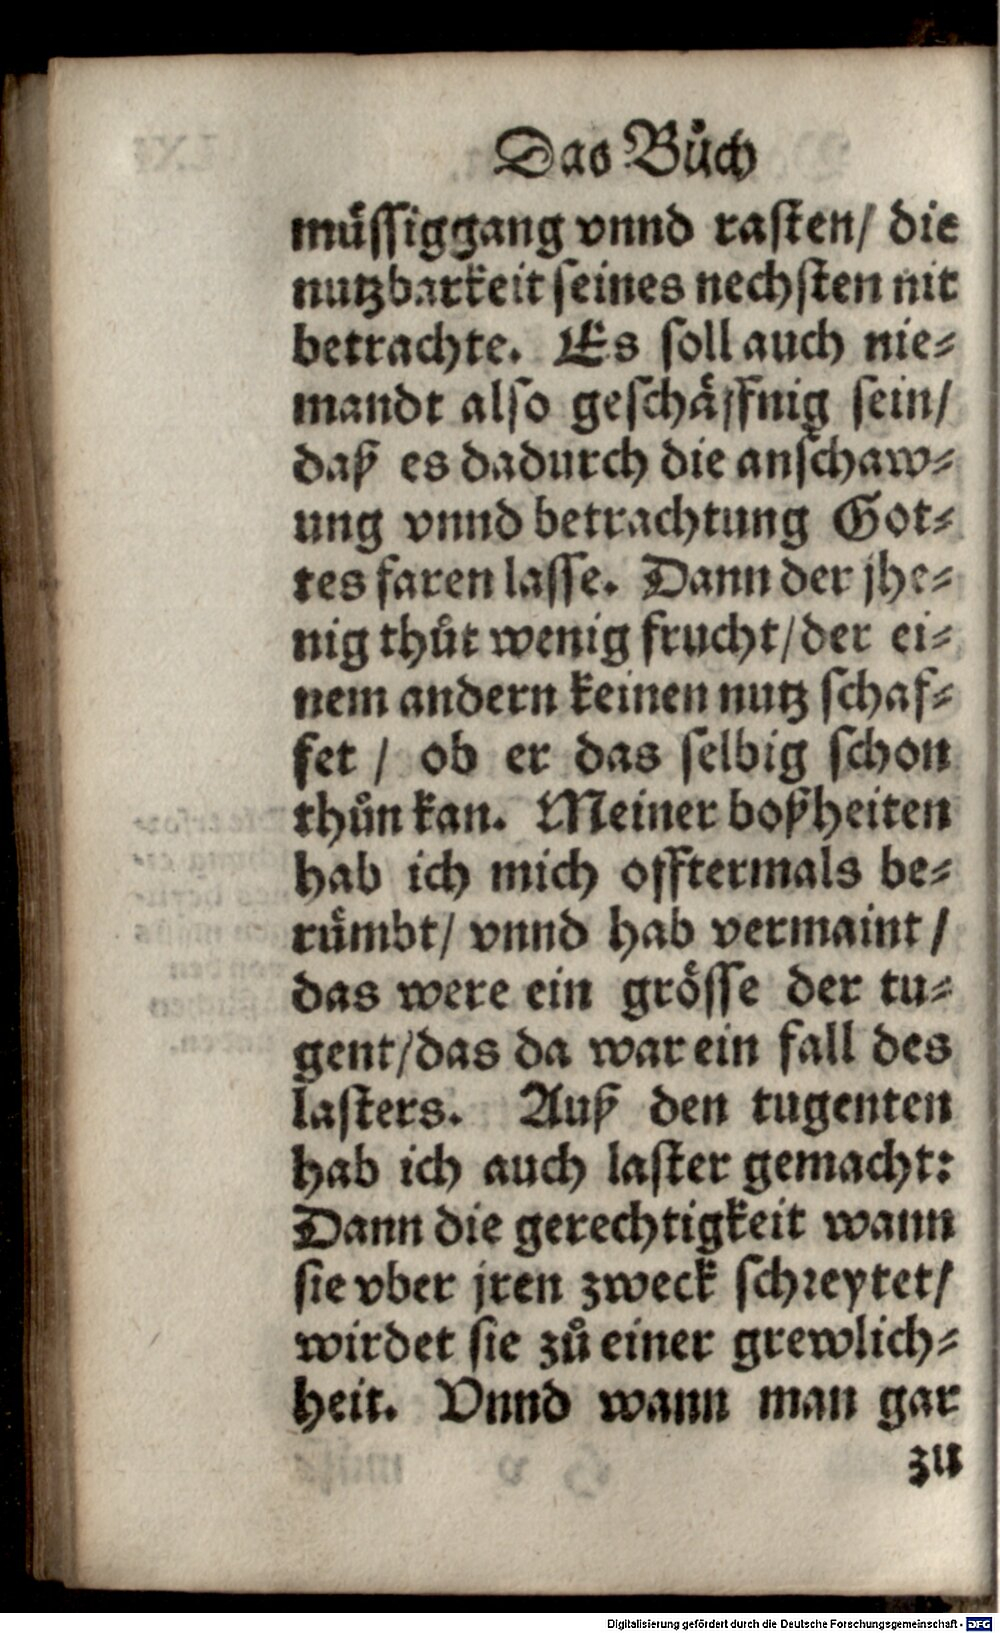 Das Bůch
müſſiggang vnnd raſten/ die
nutzbarkeit ſeines nechſten nit
betrachte. Es ſoll auch nie⸗
mandt alſo geſchäffnig ſein/
daß es dadurch die anſchaw⸗
ung vnnd betrachtung Got⸗
tes faren laſſe. Dann der jhe⸗
nig thůt wenig frucht/der ei⸗
nem andern keinen nutz ſchaf⸗
fet / ob er das ſelbig ſchon
thůn kan. Meiner boßheiten
hab ich mich offtermals be⸗
rümbt/ vnnd hab vermaint /
das were ein gröſſe der tu⸗
gent/das da war ein fall des
laſters. Auß den tugenten
hab ich auch laſter gemacht:
Dann die gerechtigkeit wann
ſie vber jren zweck ſchꝛeytet/
wirdet ſie zů einer grewlich⸗
heit. Vnnd wann man gar
zu
Digitalisierung gefördert durch die Deutsche Forschungsgemeinschaft - DFG